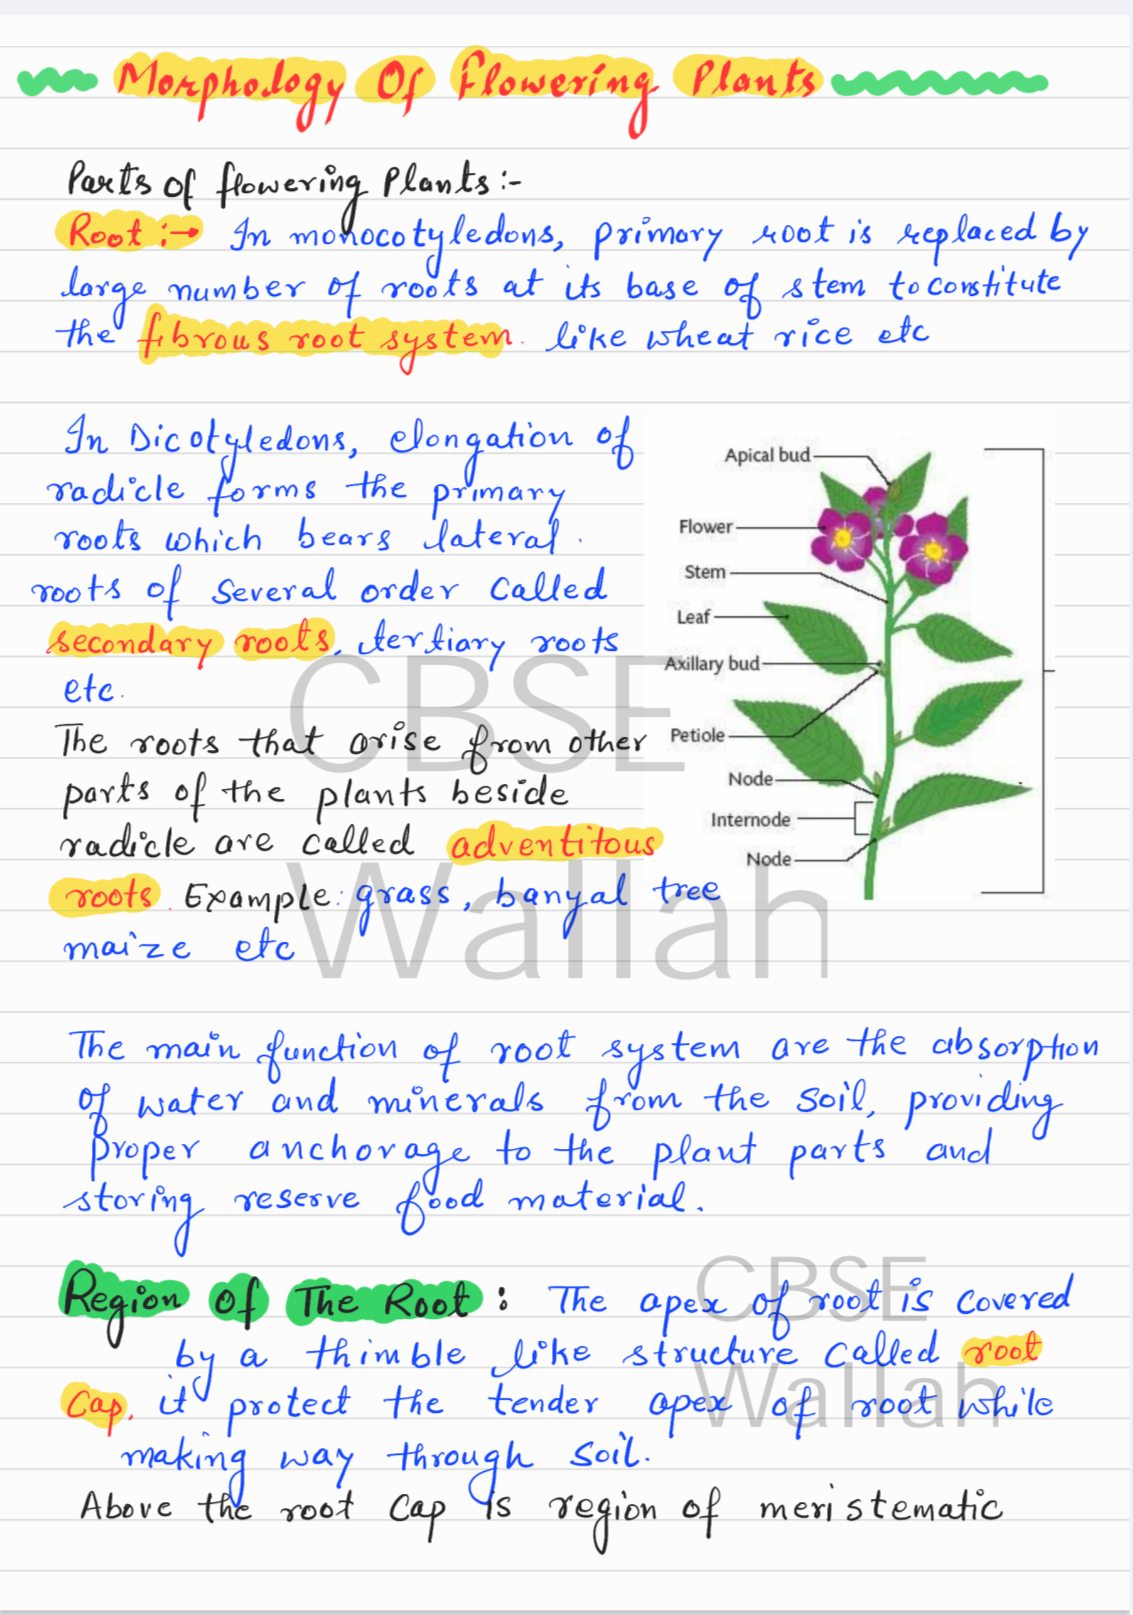 Morphology Of Flowering Plants
Parts of flowering Plants :-
Root :→ In monocotyledons, primary root is replaced by
large number of roots at its base of stem to constitute
the fibrous root system. like wheat rice etc
In Dicotyledons, elongation of
radicle forms the primary
roots which bears lateral.
roots of several order called
secondary roots, tertiary roots
etc.
The roots that arise from other
parts of the plants beside
radicle are called adventitous
roots. Example: grass, banyal tree
maize etc
Apical bud
Flower
Stem
Leaf
Axillary bud
Petiole
Node
Internode
Node
CBSE
Wallah
The main function of root system are the absorption
of water and minerals from the soil, providing
proper anchorage to the plant parts and
storing reserve food material.
Region Of The Root : The apex of root is covered
by a thimble like structure called root
Cap, it protect the tender apex of root while
making way through soil.
Above the root cap is region of meristematic
CBSE
Wallah